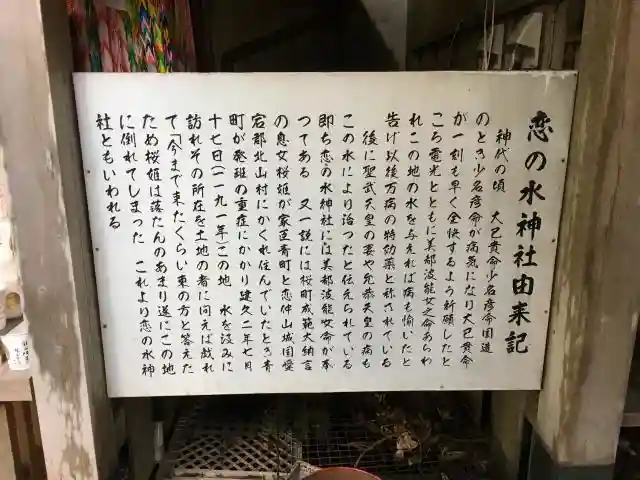 恋の水神社由来記
神代の頃 大己貴命少名彦命国造
のとき少名彦命が病気になり大己貴命
が一刻も早く全快するよう祈願したと
ころ電光とともに美都波能女之命あらわ
れこの地の水を与えれば病も愉いたと
告げ以後万病の特効薬と称されている
後に聖武天皇の妻や允恭天皇の病も
この水により治つたと伝えられている
即ち恋の水神社には美都波能女命が本
つてある 又一説には桜町成範大納言
の息女桜姫が家臣青町と恋仲山城国愛
宕郡北山村にかくれ住んでいたとき青
町が発班の重症にかかり建久二年七月
十七日(一一九一年)この地 水を汲みに
訪れその所在を土地の者に問えば戯れ
て「今まで来たくらい東の方と答えた
ため桜姫は落たんのあまり遂にこの地
に倒れてしまった これより恋の水神
社ともいわれる